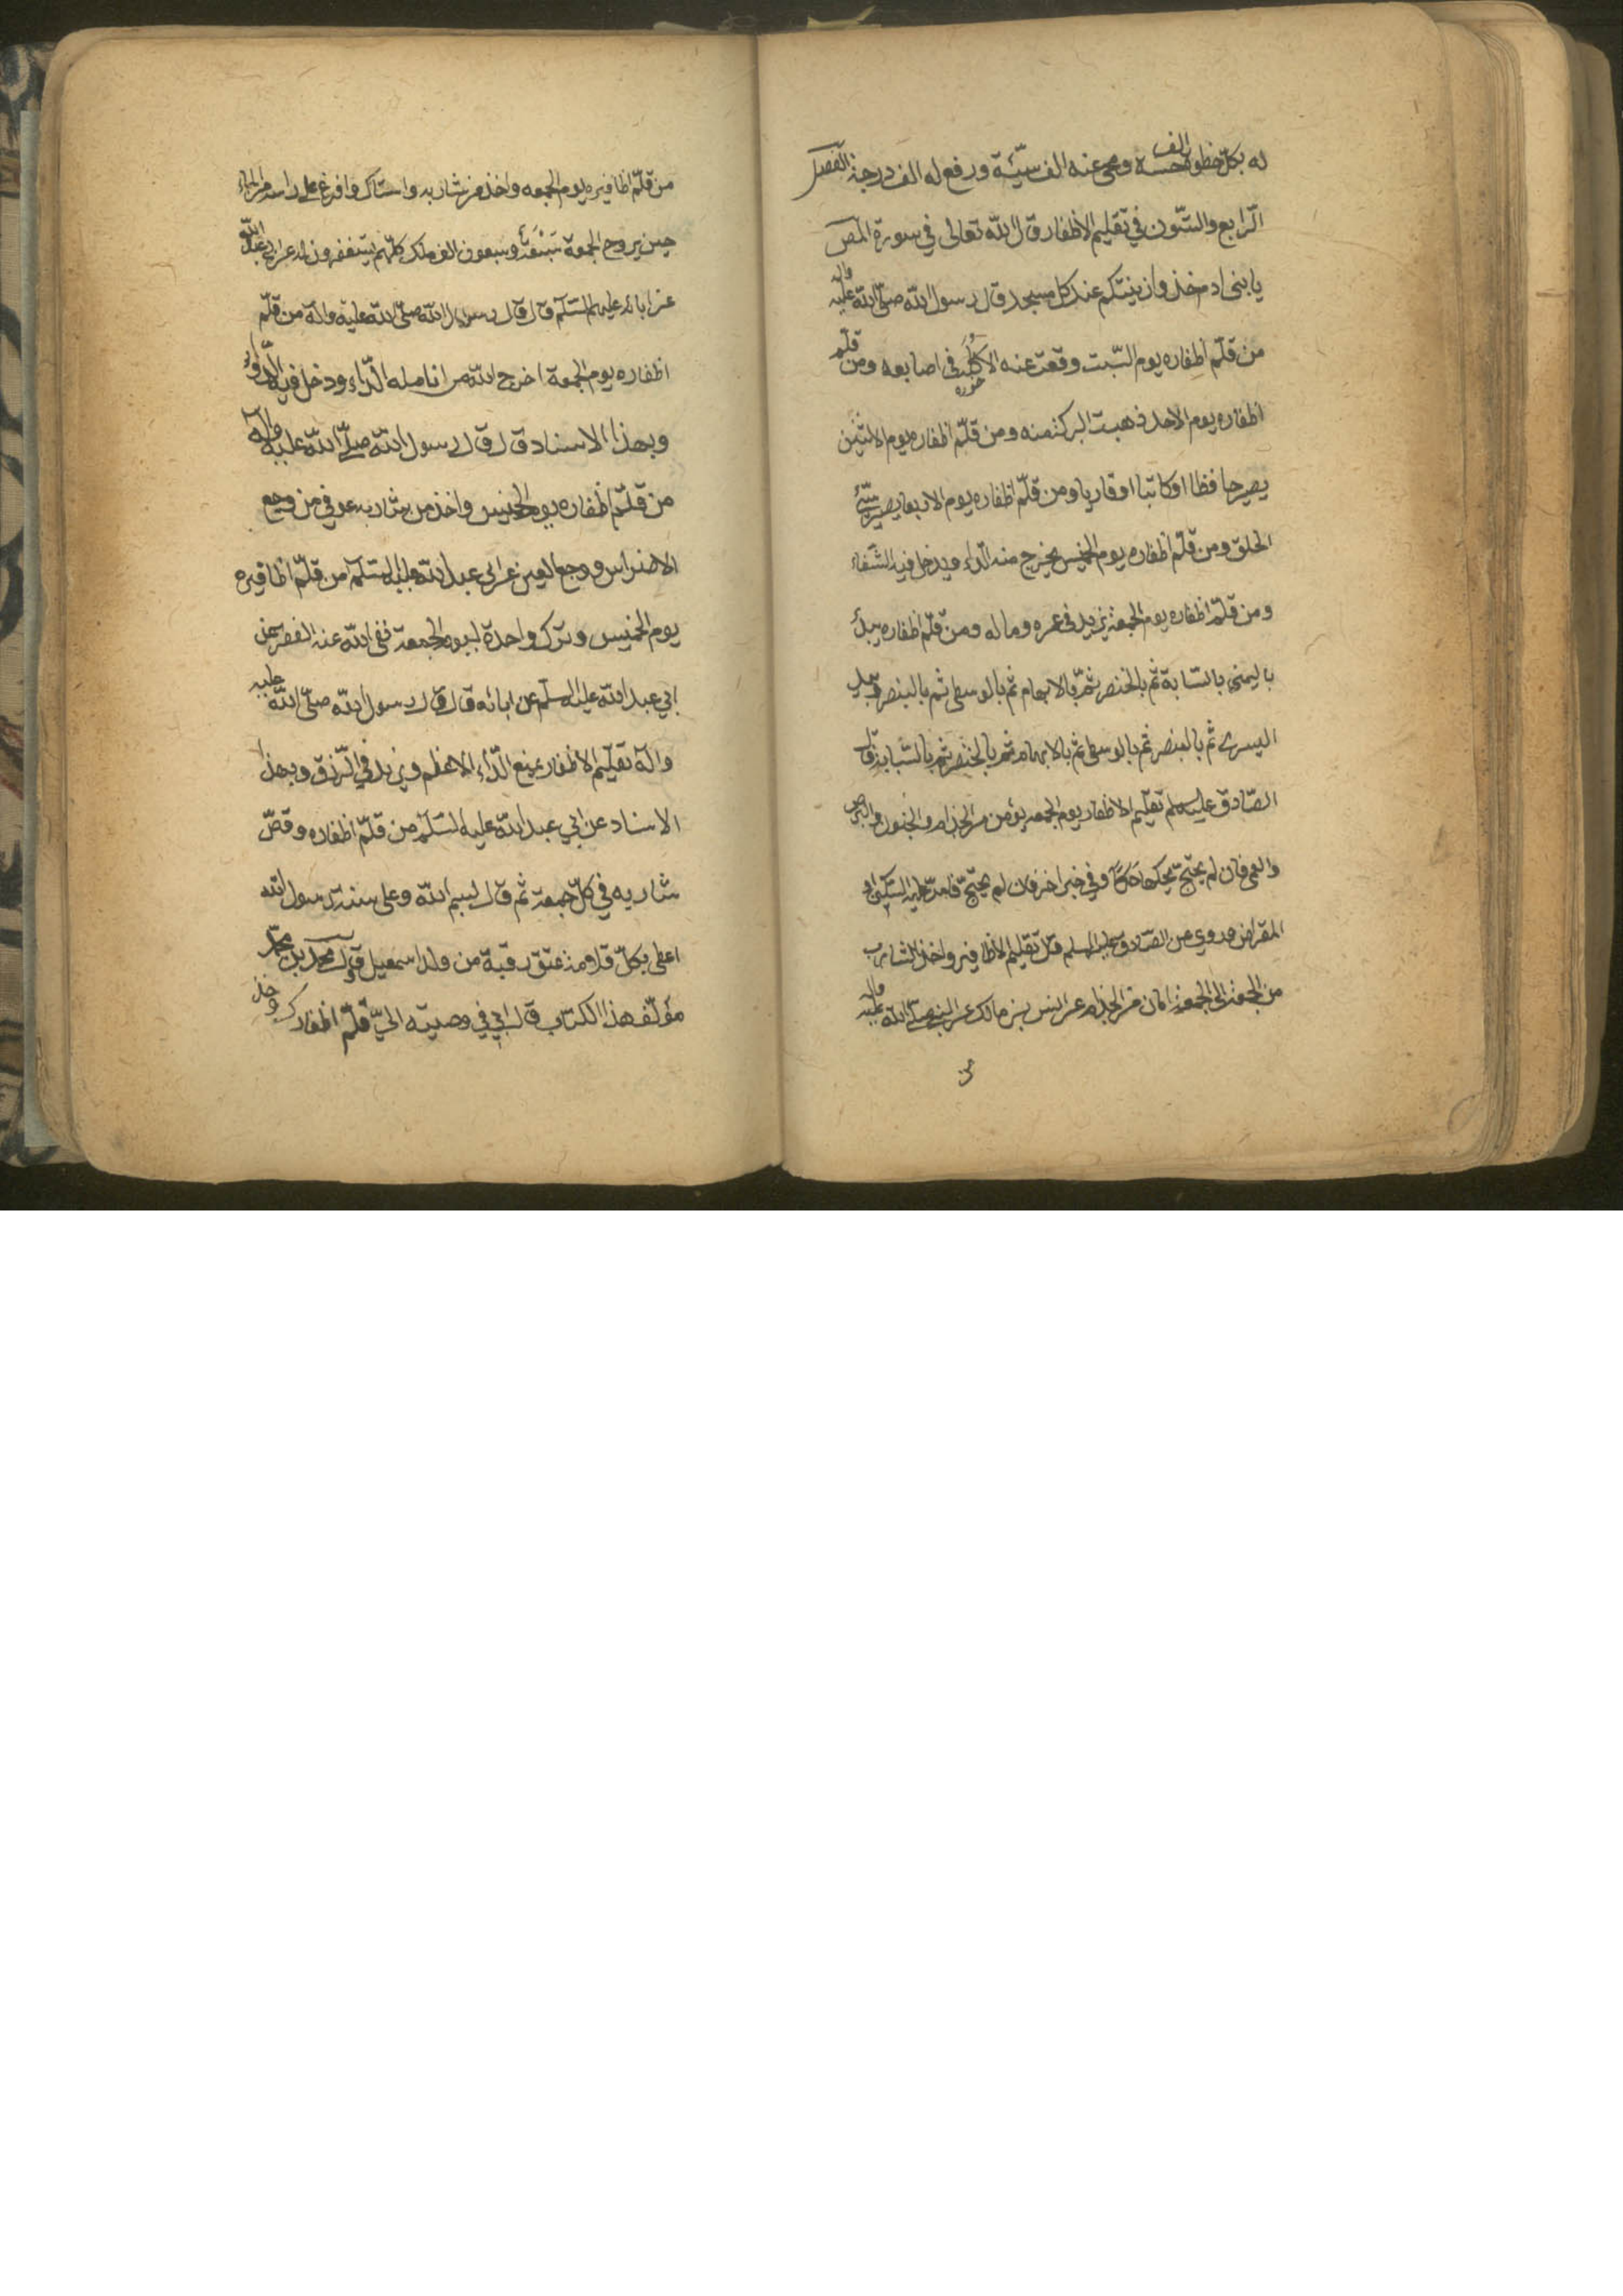 له بكلّ خطوة الف حسنه ومحى عنه الف سيّئة ورفع له الف درجة الفصل
الرّابع والستّون في تقليم الاظفار قال الله تعالى في سورة المص
يا بنى ادم خذوا زينتكم عند كل مسجد قال رسول الله صلّى الله عليه واله
من قلّم اظفاره يوم السّبت وقعت عنه الاكلة في اصابعه ومن قلّم
خوره
اظفاره يوم الاحد ذهبت البركة منه ومن قلّم اظفاره يوم الاثنين
يصير حافظا اوكاتبا اوقاريا ومن قلّم اظفاره يوم الاربعا يصير سيّئ
الخلق ومن قلّم اظفاره يوم الخميس يخرج منه الدّاء ويدخل فيه الشّفاء
ومن قلّم اظفاره يوم الجمعة يزيد في عمره وماله ومن قلّم اظفاره يبدأ
باليمنى بالسّبابة ثم بالخنصر ثمّ بالابهام ثم بالوسطى ثم بالبنصر
اليسرى ثم بالبنصر ثم بالوسطى ثم بالابهام ثم بالخنصر ثم بالسّبابة قال
الصّادق عليه السلم تقليم الاظفار يوم الجمعه يؤمن من الجذام والجنون والبرص
والعمى فان لم يحتج يحكها حكّا وفي خبر اخر فان لم يحتج فامرّ عليه السكّين او
المقراض وروي عن الصّادق عليه السلم قال تقليم الاظافير واخذ الشارب
من الجمعة الى الجمعة امان من الجذام عن انس بن مالك عن النبي صلّى الله عليه واله
من قلّم اظافيره يوم الجمعه واخذ من شاربه واستاك وافرغ على راسه من الماء
حين يروح الجمعة شيّعه وسبعون الف ملك كلّهم يستغفرون له عن ابي عبد الله
عن ابائه عليهم السّلم قال قال رسول الله صلّى الله عليه واله من قلّم
اظفاره يوم الجمعة اخرج الله من انامله الدّاء ودخل فيه الدّواء
وبهذا الاسناد قال قال رسول الله صلّى الله عليه واله
من قلّم اظفاره يوم الخميس واخذ من شاربه عوفي من وجع
الاضراس ووجع العين عن ابي عبد الله عليه السّلم من قلّم اظافيره
يوم الخميس وترك واحدة ليوم الجمعة نفى الله عنه الفقر عن
ابي عبد الله عليه السلم عن ابائه قال قال رسول الله صلّى الله عليه
واله تقليم الاظفار يمنع الدّاء الاعظم ويزيد في الرّزق وبهذا
الاسناد عن ابي عبد الله عليه السّلم من قلّم اظفاره وقصّ
شاربه في كلّ جمعة ثم قال بسم الله وعلى سنة رسول الله
اعطى بكلّ قلامة عتق رقبة من ولد اسمعيل قال محمد بن محمّد
مؤلّف هذا الكتاب قال ابي في وصيته اليّ قلّم اظفارك وخذ